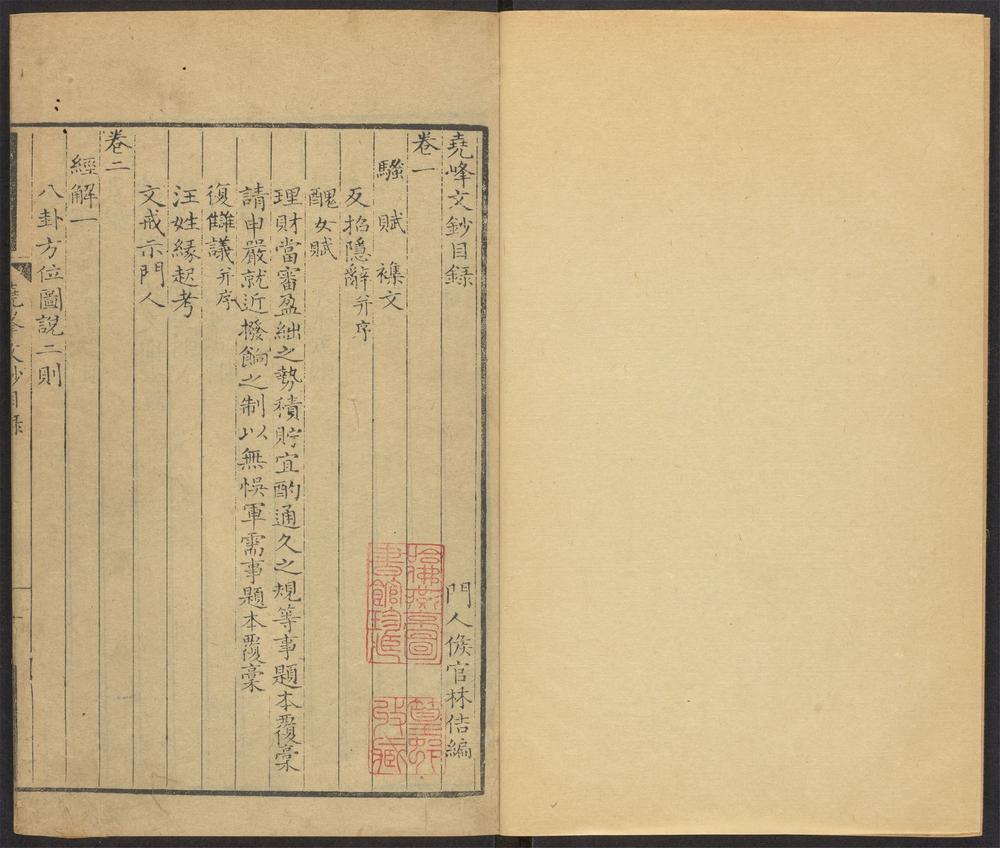 堯峰文鈔目録
門人候官林佶編
卷一
騷賦襍文
反招隱辭并序
醜女賦
理財當審盈絀之勢積貯宜酌通久之規等事題本覆稾
請申嚴就近撥餉之制以無悞軍需事題本覆稾
復讎議并序
汪姓緣起考
文戒示門人
卷二
經解一
八卦方位圖說二則
堯峰文鈔目録
哈佛燕京圖書館珍藏